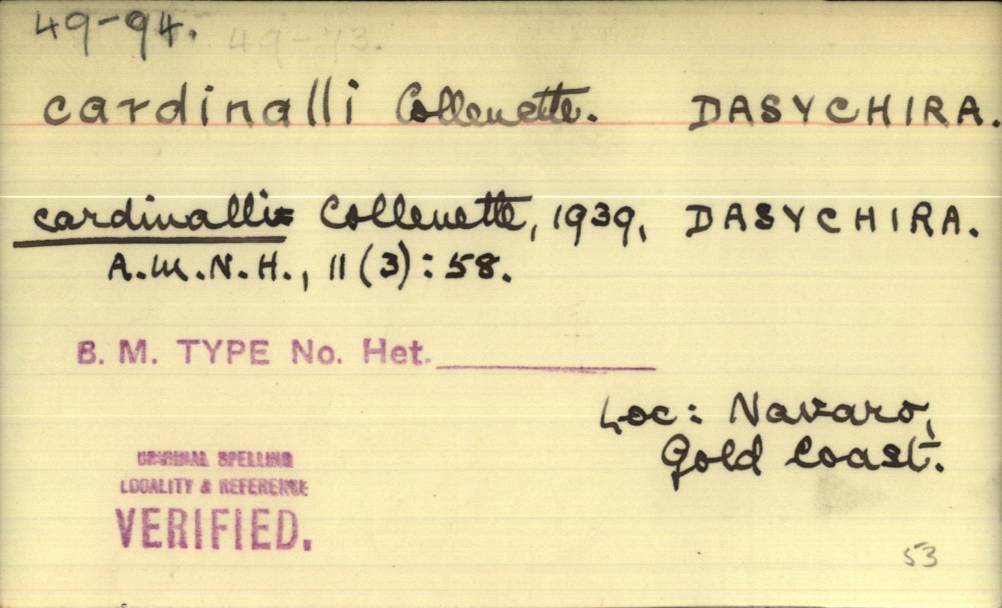 49-94. 49-73.
cardinalli Collenette. DASYCHIRA.
cardinalli Collenette, 1939, DASYCHIRA.
A.M.N.H., 11 (3) : 58.
B. M. TYPE No. Het.
Loc: Navaro,
Gold Coast.
ORIGINAL SPELLING
LOCALITY & REFERENCE
VERIFIED.
53